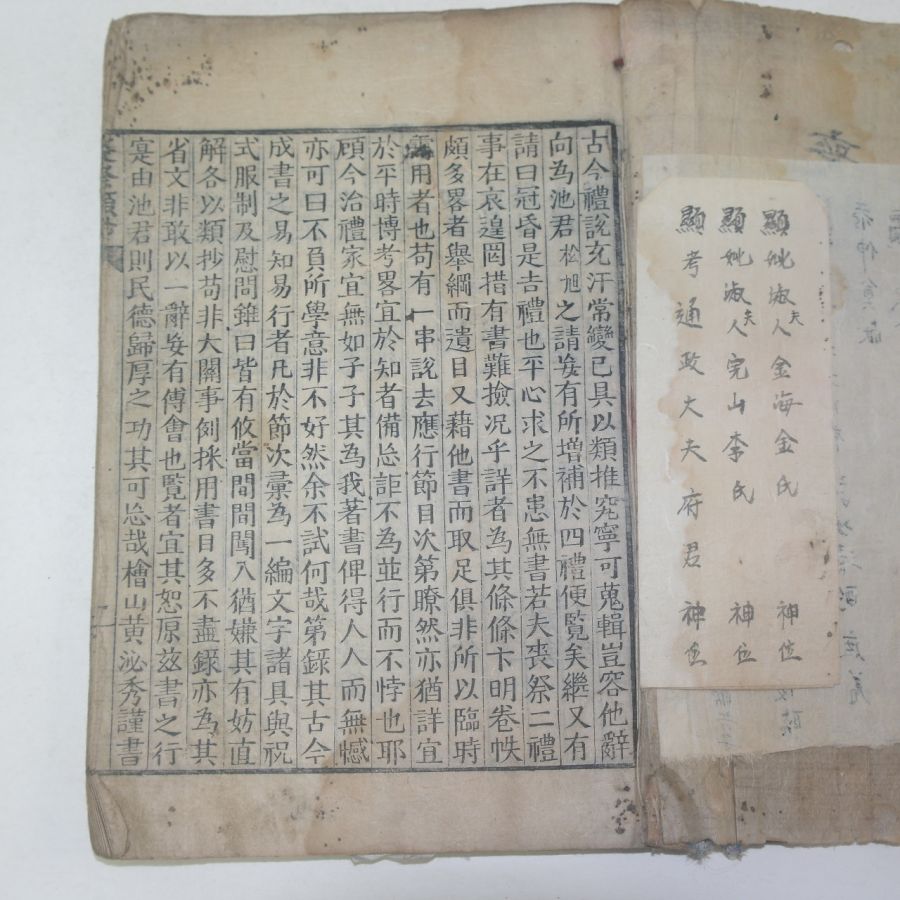 顯妣淑夫人金海金氏 神位
顯妣淑夫人完山李氏 神位
顯考通政大夫府君 神位
古今禮說充汗常變已具以類推究寧可蒐輯豈容他辭
向為池君松旭之請妄有所增補於四禮便覽矣繼又有
請曰冠昏是吉禮也平心求之不患無書若夫喪祭二禮
事在哀遑罔措有書難撿况乎詳者為其條條卞明卷帙
頗多畧者舉綱而遺目又藉他書而取足俱非所以臨時
用者也苟有一串說去應行節目次第瞭然亦猶詳宜
於平時博考畧宜於知者備忘詎不為並行而不悖也耶
頋今治禮家宜無如子子其為我著書俾得人人而無憾
亦可曰不負所學意非不好然余不試何哉第錄其古今
成書之易知易行者凡於節次彙為一編文字諸具與祝
式服制及慰問錐曰皆有攸當間間闖入猶嫌其有妨直
解各以類抄苟非大關事例採用書目多不盡錄亦為其
省文非敢以一辭妄有傅會也覽者宜其恕原玆書之行
寔由池君則民德歸厚之功其可忘哉檜山黄泌秀謹書